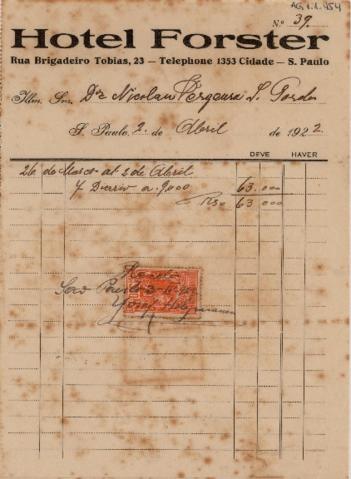 AG.1.1.454
N.º 39
Hotel Forster
Rua Brigadeiro Tobias, 23 — Telephone 1353 Cidade — S. Paulo
Illmo. Snr. Dr Nicolau Vergueiro S. Paulo
S. Paulo, 2 de Abril de 1922
DEVE HAVER
26 de Março at 2 de Abril
7 Diaria a 9000 63.000
Rs 63 000
Recebi
São Paulo 2
Josef